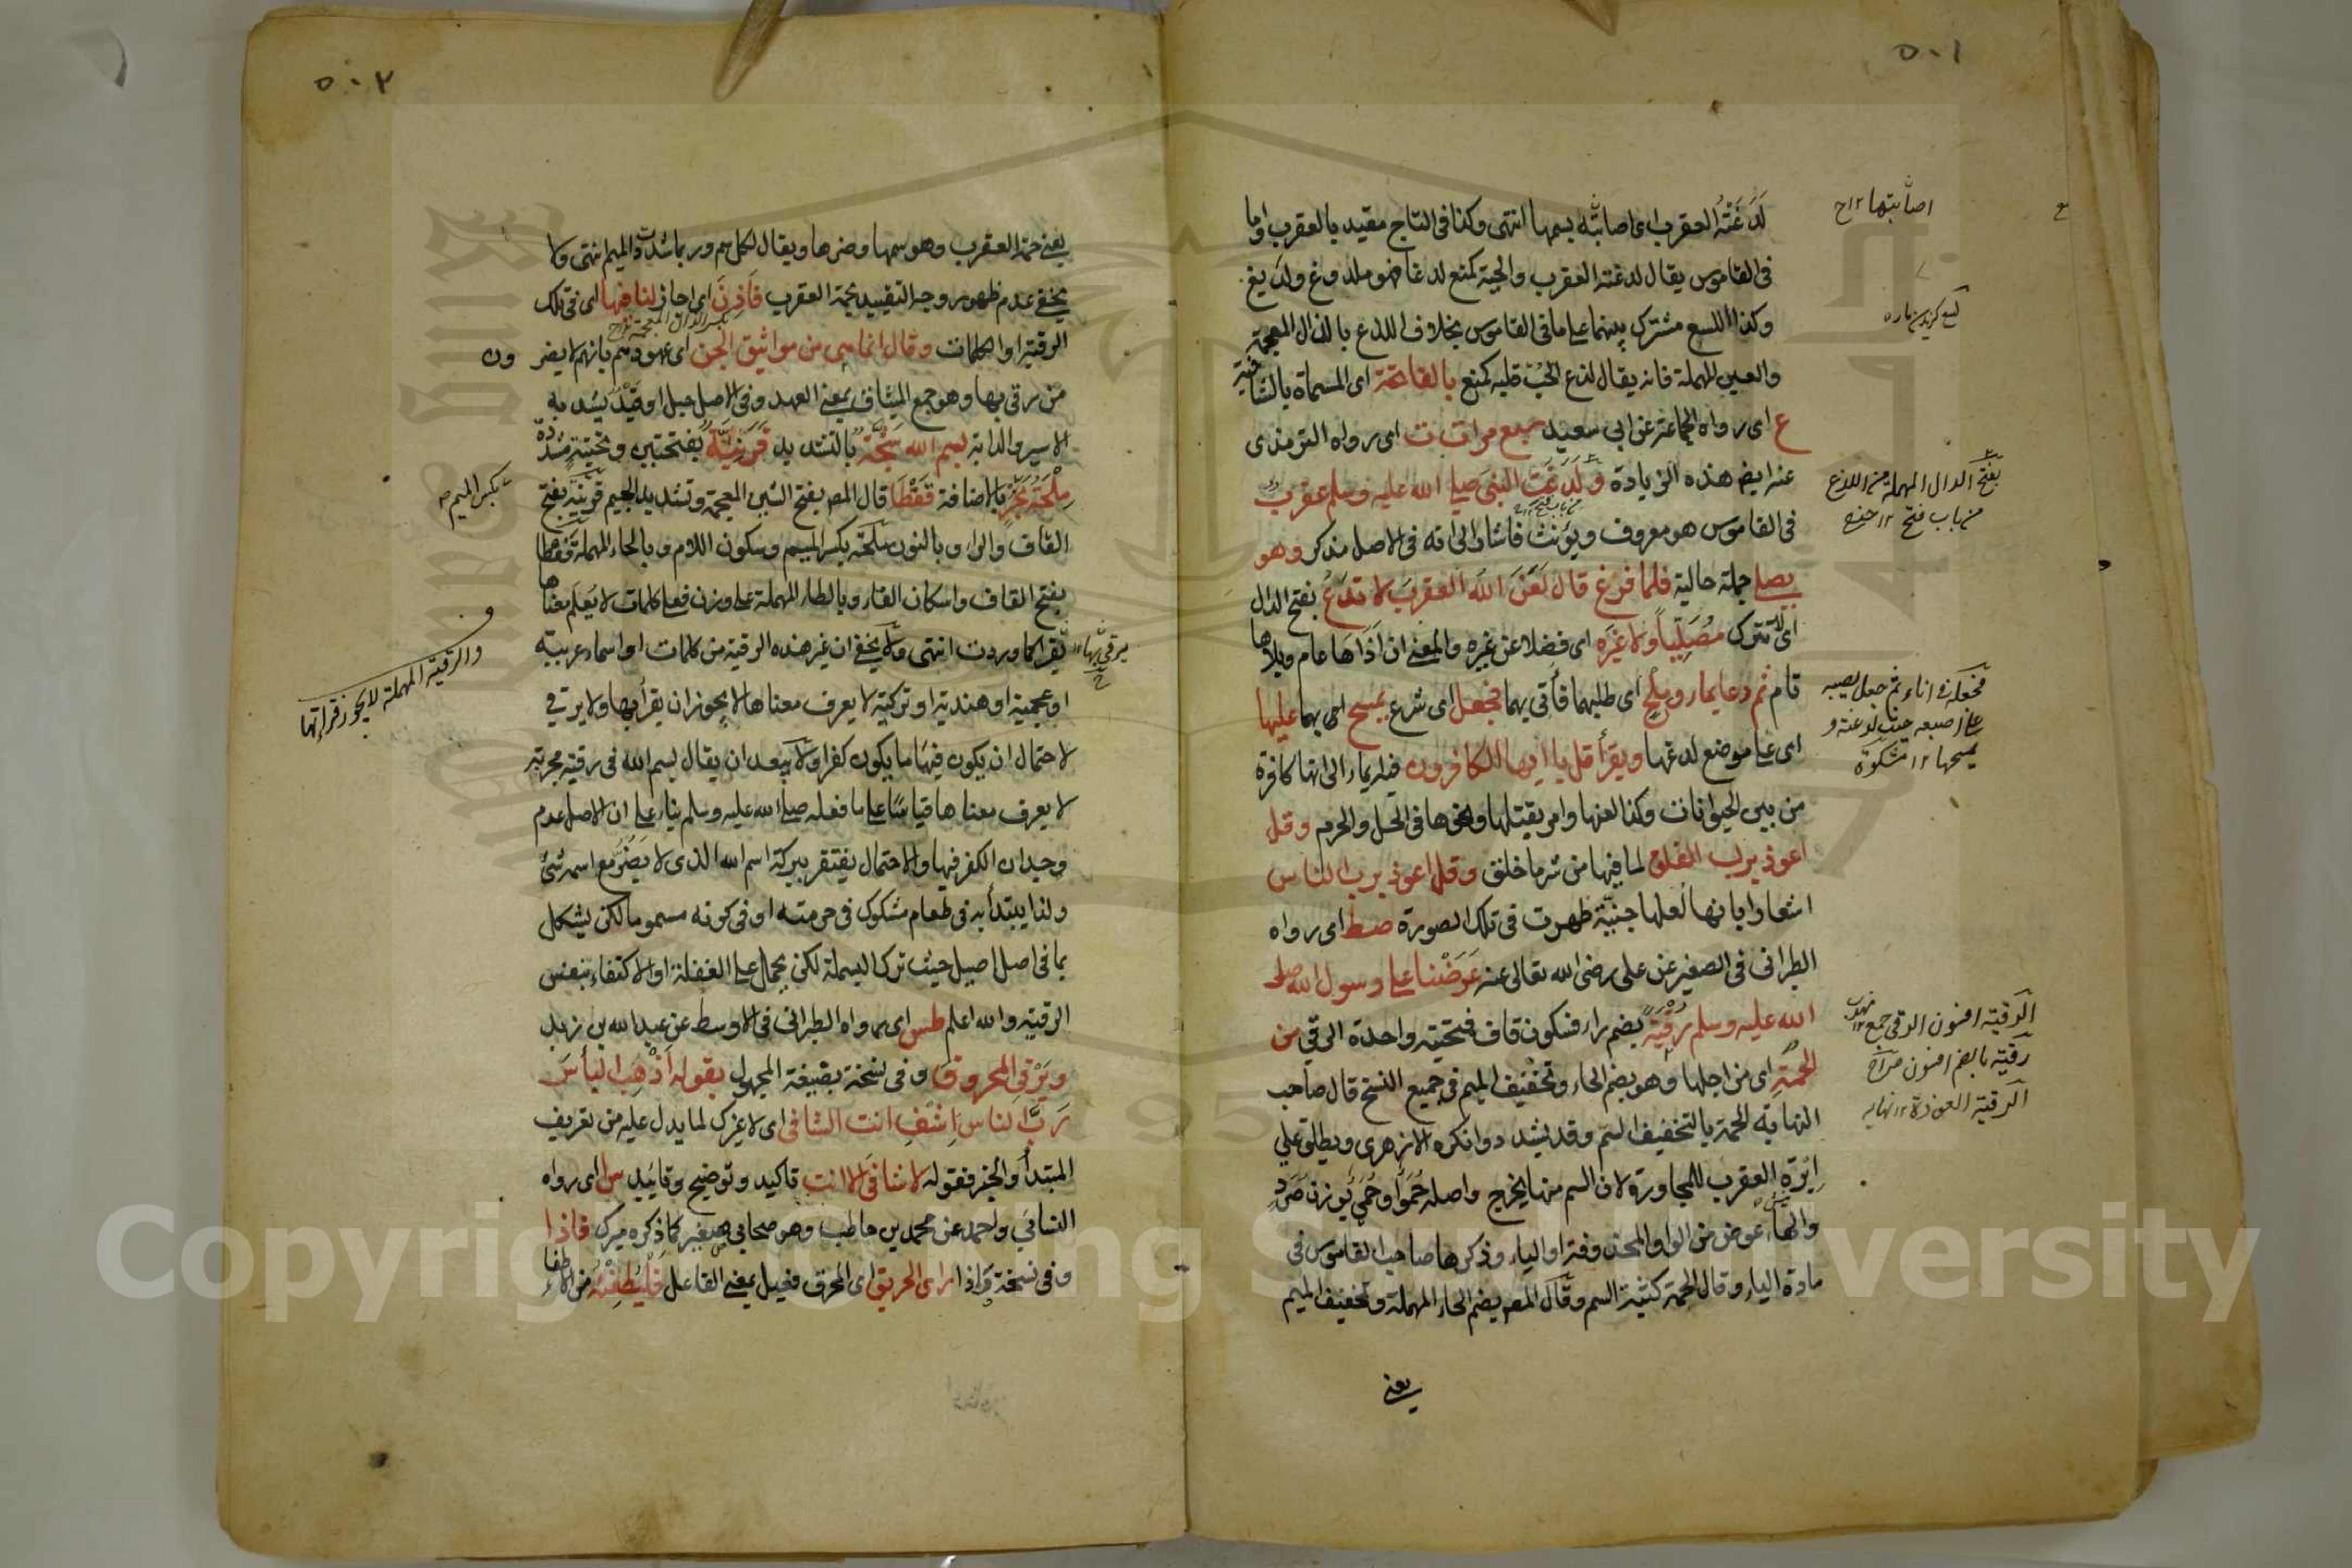 ٥٠١
لَدَغَتْهُ العقرب اى اصابتْه بسمها انتهى وكذا فى التاج مقيد بالعقرب واما
فى القاموس يقال لدغته العقرب والحية كمنع لدغا فهو ملدوغ ولديغ
وكذا اللسع مشترك بينهما على ما فى القاموس بخلاف اللذع بالذال المعجمة
والعين المهملة فانه يقال لذع الحُبّ قلبه كمنع بالفاتحة اى المسماة بالشافية
ع اى رواه الجماعة عن ابى سعيد سبع مرات ت اى رواه الترمذى
عنه ايضا هذه الزيادة ولَدَغَت النبى صلى الله عليه وسلم عقرب
فى القاموس هو معروف ويؤنث فاشار الى انه فى الاصل مذكر وهو
يصلى جملة حالية فلما فرغ قال لَعَنَ اللّٰه العقربَ لا تَدَعُ بفتح الدال
اى لا تترك مُصَلِّياً ولا غيرَه اى فضلا عن غيره والمعنى ان اَذَاهَا عام وبلاها
قام ثم دعا بماء وملح اى طلبهما فأتى بهما فجعل اى شرع يمسح اى بهما عليها
اى على موضع لدغها ويقرأ قل يا ايها الكافرون فيه ايماء الى انها كافرة
من بين الحيوانات وكذا لعنها وامر بقتلها ونحوها فى الحل والحرم وقل
اعوذ برب الفلق لما فيها من شر ما خلق وقل اعوذ برب الناس
اشعارا بانها لعلها جِنيَّة ظهرت فى تلك الصورة صط اى رواه
الطبرانى فى الصغير عن على رضى الله تعالى عنه عَرَضْنا على رسول الله صلى
الله عليه وسلم رُقْيَةً بضم راء فسكون قاف فتحتية واحدة الرقى من
الحُمَةِ اى من اجلها وهو بضم الحاء وتخفيف الميم فى جميع النسخ قال صاحب
النهاية الحمة بالتخفيف السم وقد يشدد وانكره الازهرى ويطلق على
اِبْرَةِ العقرب للمجاورة لان السم منها يخرج واصله حُمَوٌ او حُمَىٌ بوزن صُرَدٍ
والهاء عوض من الواو المحذوفة او الياء وذكرها صاحب القاموس فى
مادة الياء وقال الحمة كثبة السم وقال المص بضم الحاء المهملة وتخفيف الميم
يعنى
اصابتها ١٢ ح
بفتح الدال المهملة من اللدغ
من باب فتح ١٢
فجعله فى اناء ثم جعل يصبه
على اصبعه حيث لدغته و
يمسحها ١٢ مشكوة
الرقية افسون الرقى جمع
رقية بالضم افسون صراح
الرقية العوذة ١٢ نهايه
٥٠٢
يعنى حمة العقرب وهو سمها وضرها ويقال لكل سم وربما شددت الميم انتهى ولا
يخفى عدم ظهور وجه التقييد بحمة العقرب فَاَذِنَ اى اجاز لنا فيها اى فى تلك
الرقية او الكلمات وقال انما هى من مواثيق الجن اى عهودهم بانهم لا يضرون
من رقى بها وهو جمع الميثاق بمعنى العهد وفى الاصل حبل او قَيْدٌ يُشد به
الاسير والدابة بسم الله شَجَّةٌ بالتشديد قَرَنِيَّةٌ بفتحتين وتحتية مشددة
مِلْحَةُ بَحْرٍ بالاضافة قَفْطَا قال المص بفتح الشين المعجمة وتشديد الجيم قرنية بفتح
القاف والراء وبالنون ملحة بكسر الميم وسكون اللام وبالحاء المهملة قفطا
بفتح القاف واسكان الفاء وبالطاء المهملة على وزن فعلى كلمات لا يُعلم معناها
يقرأ كما وردت انتهى ولا يخفى ان غير هذه الرقية من كلمات او اسماء عربية
او عجمية او هندية او تركية لا يعرف معناها لا يجوز ان يقرأ بها ولا يرقى
لاحتمال ان يكون فيها ما يكون كفرا ولا يبعد ان يقال بسم الله فى رقية مجربة
لا يعرف معناها قياسًا على ما فعله صلى الله عليه وسلم بناء على ان الاصل عدم
وجدان الكفر فيها والاحتمال يفتقر ببركة اسم الله الذى لا يَضُرُّ مع اسمه شئ
ولذا يبتدأ به فى طعام مشكوك فى حرمته او فى كونه مسموما لكن يشكل
بما فى اصل اصيل حيث ترك البسملة لكن يحمل على الغفلة او الاكتفاء بنفس
الرقية والله اعلم طس اى رواه الطبرانى فى الاوسط عن عبد الله بن زيد
ويَرْقِى المحروقَ وفى نسخة بصيغة المجهول بقوله اَذْهِبِ الباْسَ
رَبَّ الناس اِشْفِ انت الشافى اى لا غيرك لما يدل عليه من تعريف
المبتدأ والخبر فقوله لا شافىَ الا انت تاكيد وتوضيح وتاييد س ا اى رواه
النسائى واحمد عن محمد بن حاطب وهو صحابى صغير كما ذكره ميرك فاذا
وفى نسخة واذا راى الحريق اى المحرق فعيل بمعنى الفاعل فَلْيُطْفِئْهُ من الاطفاء
بكسر الذال المعجمة
بكسر الميم
يرقى بها ١٢ ح
والرقية المهملة لا يجوز قراءتها
Copyright © King Saud University
1957